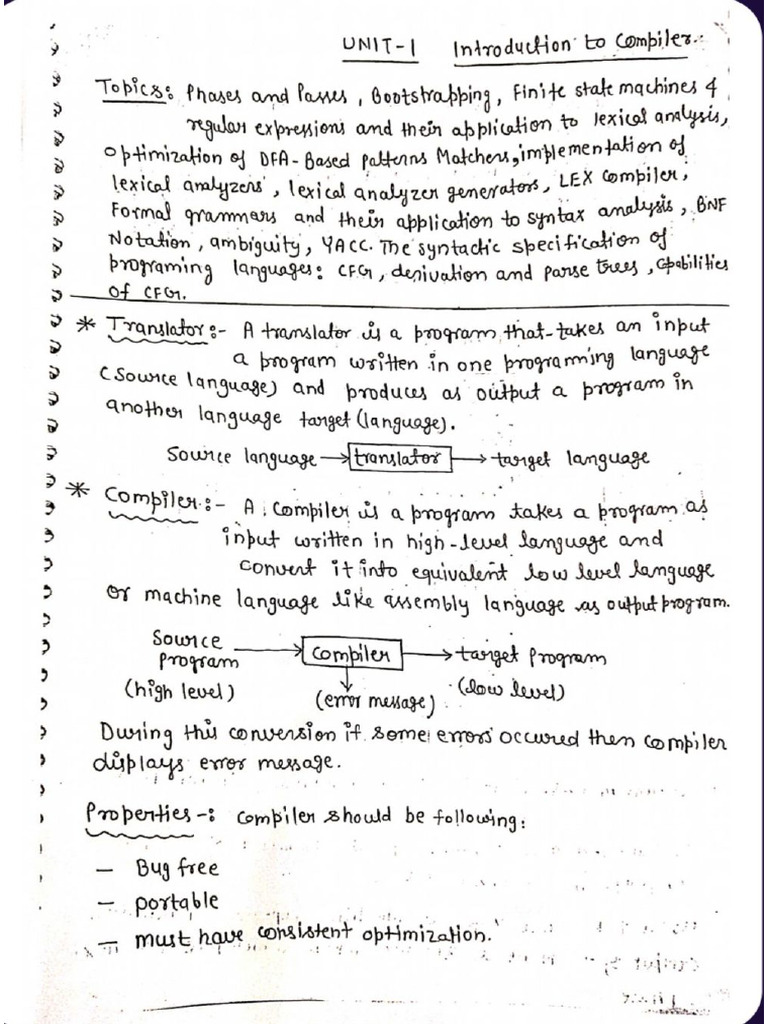 UNIT-1 Introduction to Compiler.
Topics: Phases and Passes, Bootstrapping, Finite state machines &
regular expressions and their application to lexical analysis,
Optimization of DFA-Based patterns Matchers, implementation of
lexical analyzers, lexical analyzer generators, LEX compiler,
Formal grammers and their application to syntax analysis, BNF
Notation, ambiguity, YACC. The syntactic specification of
programing languages: CFG, derivation and parse trees, Capabilities
of CFG.
* Translator:- A translator is a program that takes an input
a program written in one programming language
(Source language) and produces as output a program in
another language target (language).
Source language → translator → target language
* Compiler:- A Compiler is a program takes a program as
input written in high-level language and
convert it into equivalent low level language
or machine language like assembly language as output program.
Source program (high level) → Compiler → target program (low level)
(error message)
During this conversion if some errors occured then compiler
displays error message.
Properties-: Compiler should be following:
— Bug free
— portable
— must have consistent optimization.